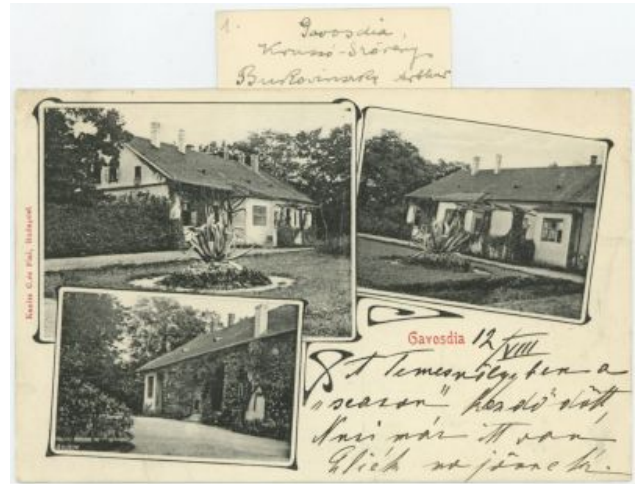 1.
Gavosdia,
Krassó-Szörény
Bukovinszky Arthur
Kunitz C. és Fiai, Budapest
Gavosdia 12/VIII
A Temesvölgyben a
"season" kezdődött,
Nusi már itt van
jönnek.